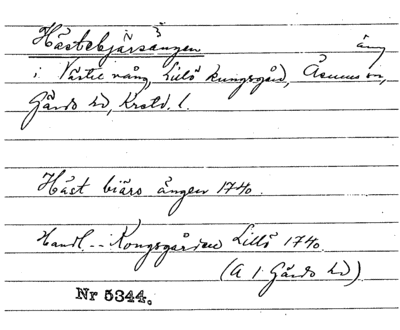 Hästebjärsängen äng
i Västra vång, Lillö kungsgård, Åsums sn,
Gärds hd, Krstd. l.
Häst biärs ängen 1740.
Handl. -- Kongsgården Lillö 1740.
(A 1 Gärds hd)
Nr 5344.